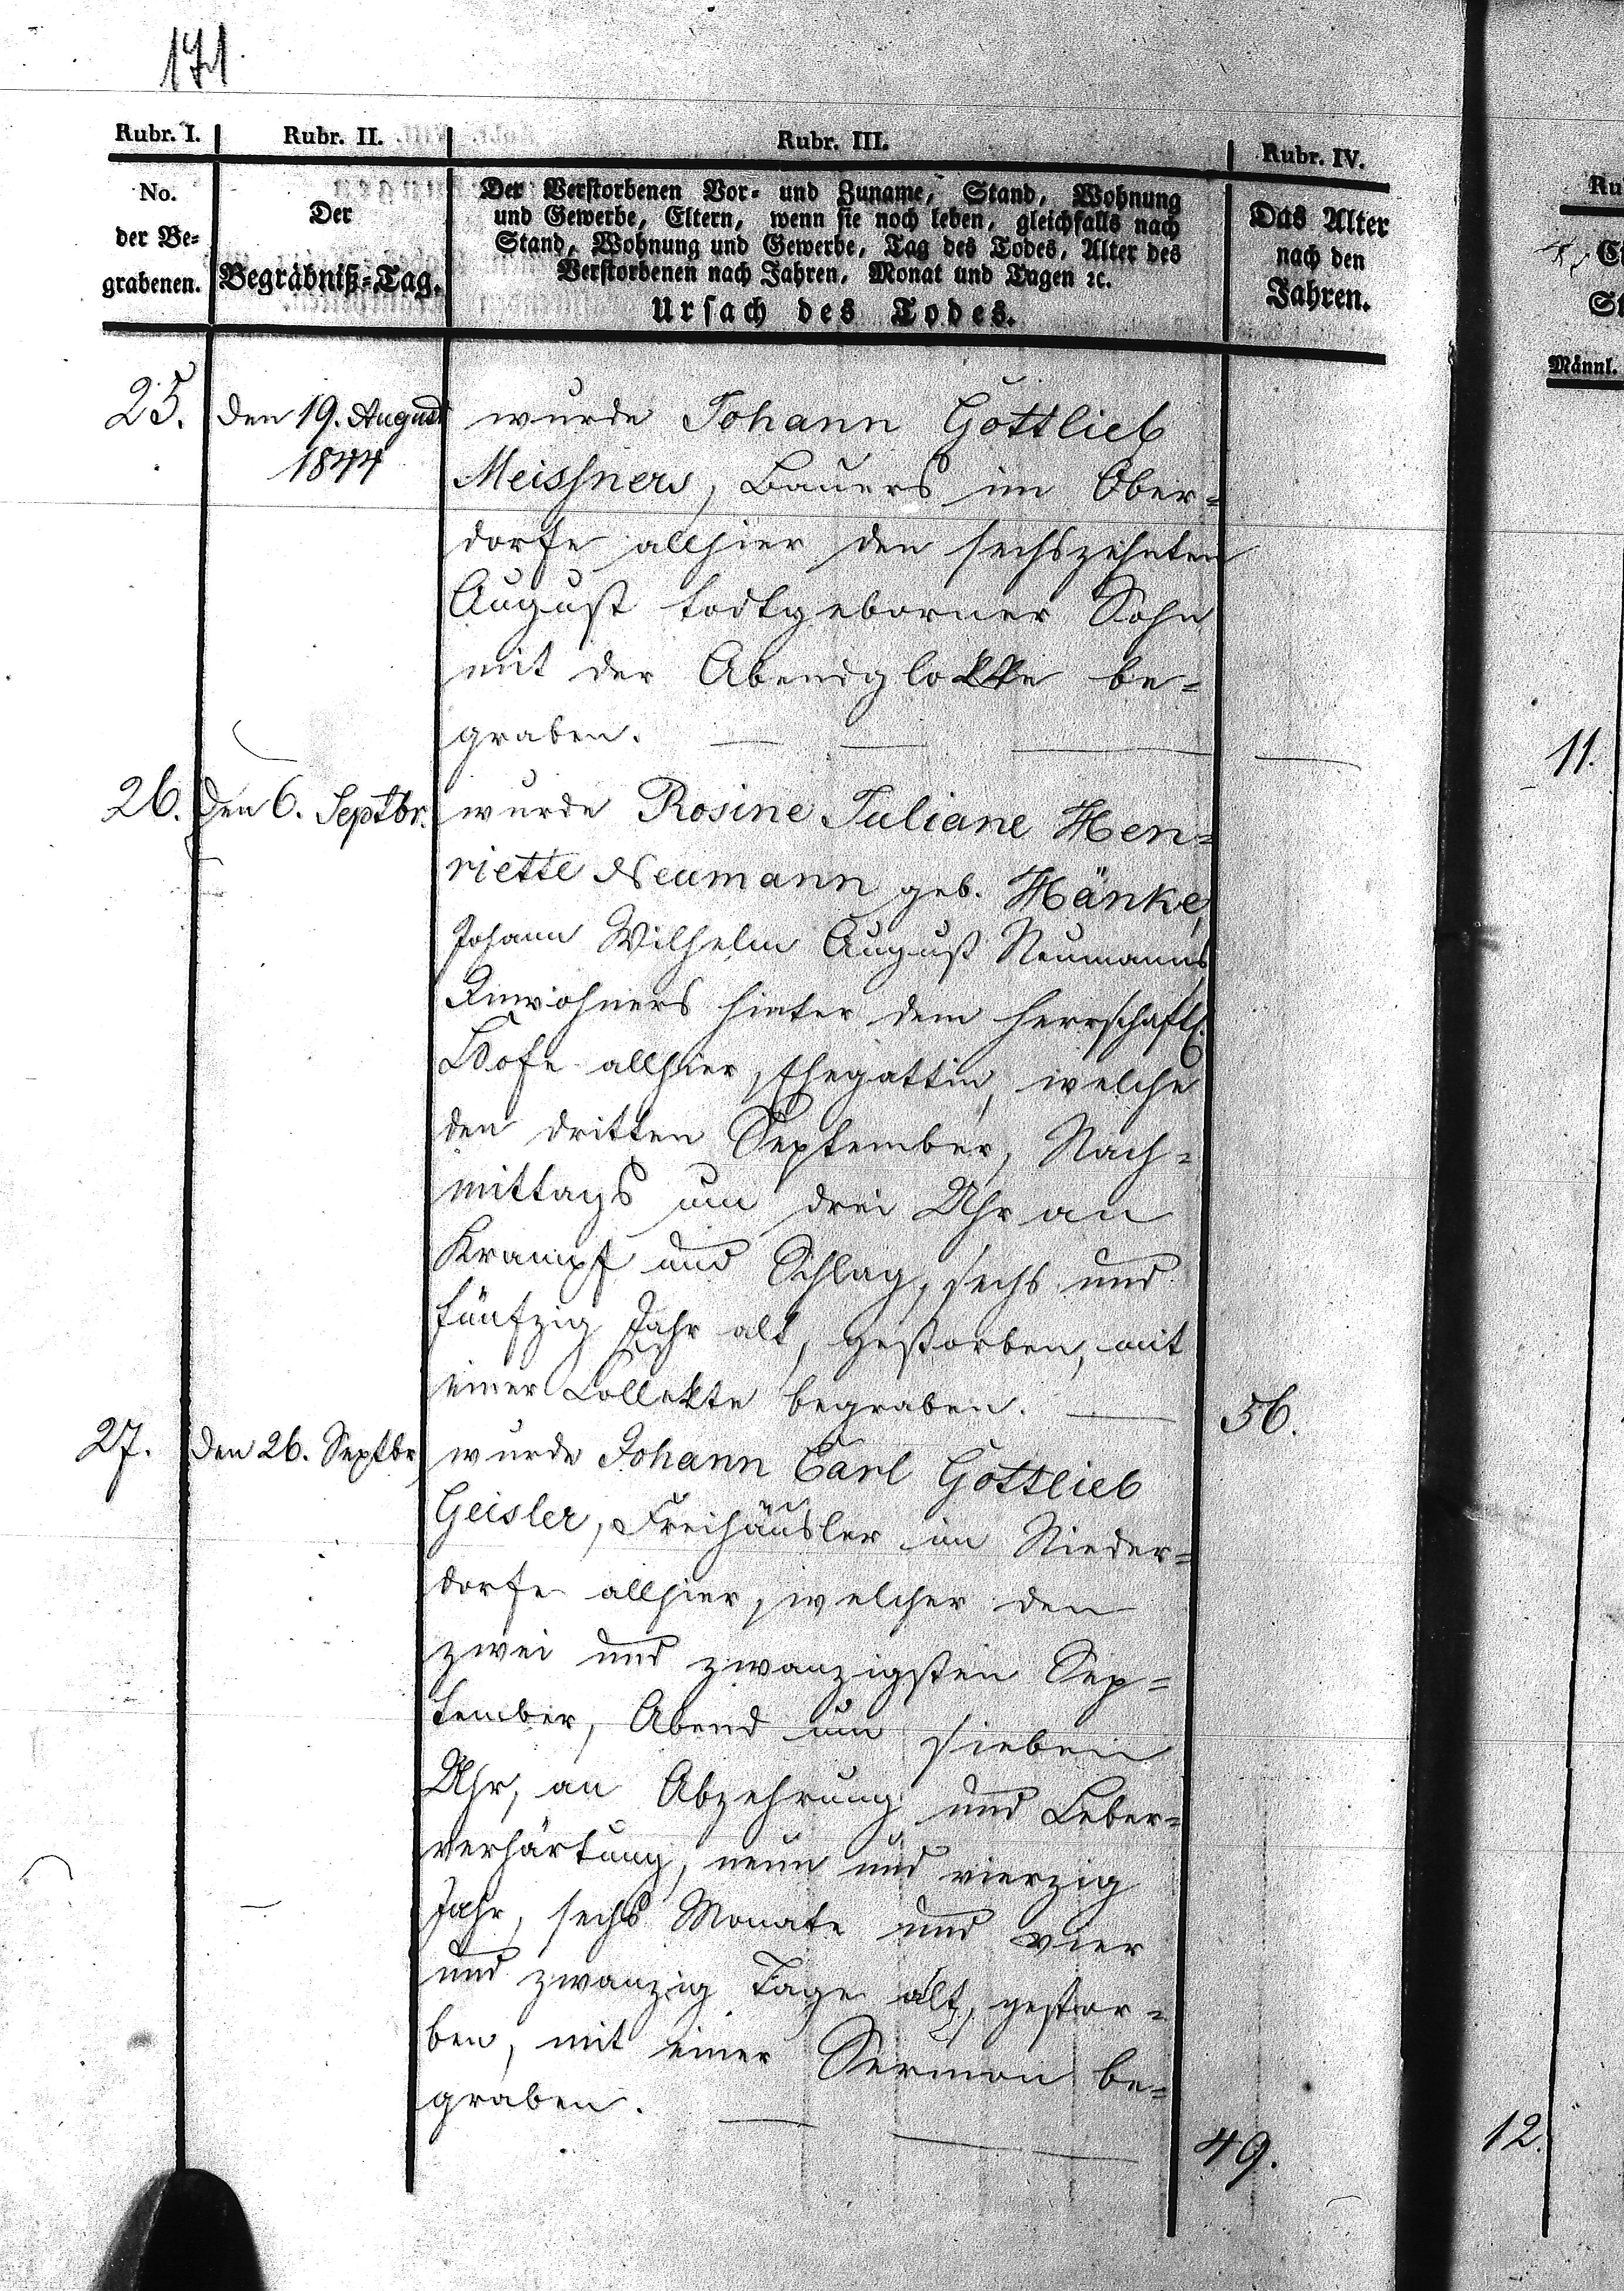 171.
Rubr. I.
Rubr. II.
Rubr. III.
Rubr. IV.
No.
der Be=
grabenen.
Der
Begräbniß=Tag.
Der Verstorbenen Vor= und Zuname, Stand, Wohnung
und Gewerbe, Eltern, wenn sie noch leben, gleichfalls nach
Stand, Wohnung und Gewerbe, Tag des Todes, Alter des
Verstorbenen nach Jahren, Monat und Tagen ꝛc.
Ursach des Todes.
Das Alter
nach den
Jahren.
25.
den 19. August
1844
wurde Johann Gottlieb
Meissners, Bauers im Ober=
dorfe allhier den sechszehnten
August todtgeborner Sohn
mit der Abendglokke be=
graben.
26.
den 6. Septbr.
wurde Rosine Juliane Hen=
riette Neumann geb. Hänke,
Johann Wilhelm August Neumanns
Einwohners hinter dem herrschaftl.
Hofe allhier, Ehegattin, welche
den dritten September, Nach=
mittags um drei Uhr an
Krampf und Schlag, sechs und
fünfzig Jahr alt, gestorben, mit
einer Collekte begraben.
56.
27.
den 26. Septbr.
wurde Johann Carl Gottlieb
Geisler, Freihäusler im Nieder=
dorfe allhier, welcher den
zwei und zwanzigsten Sep=
tember, Abend um sieben
Uhr, an Abzehrung und Leber=
verhärtung, neun und vierzig
Jahr, sechs Monate und vier
und zwanzig Tage alt, gestor=
ben, mit einer Sermon be=
graben.
49.
Ru
Männl.
11.
12.